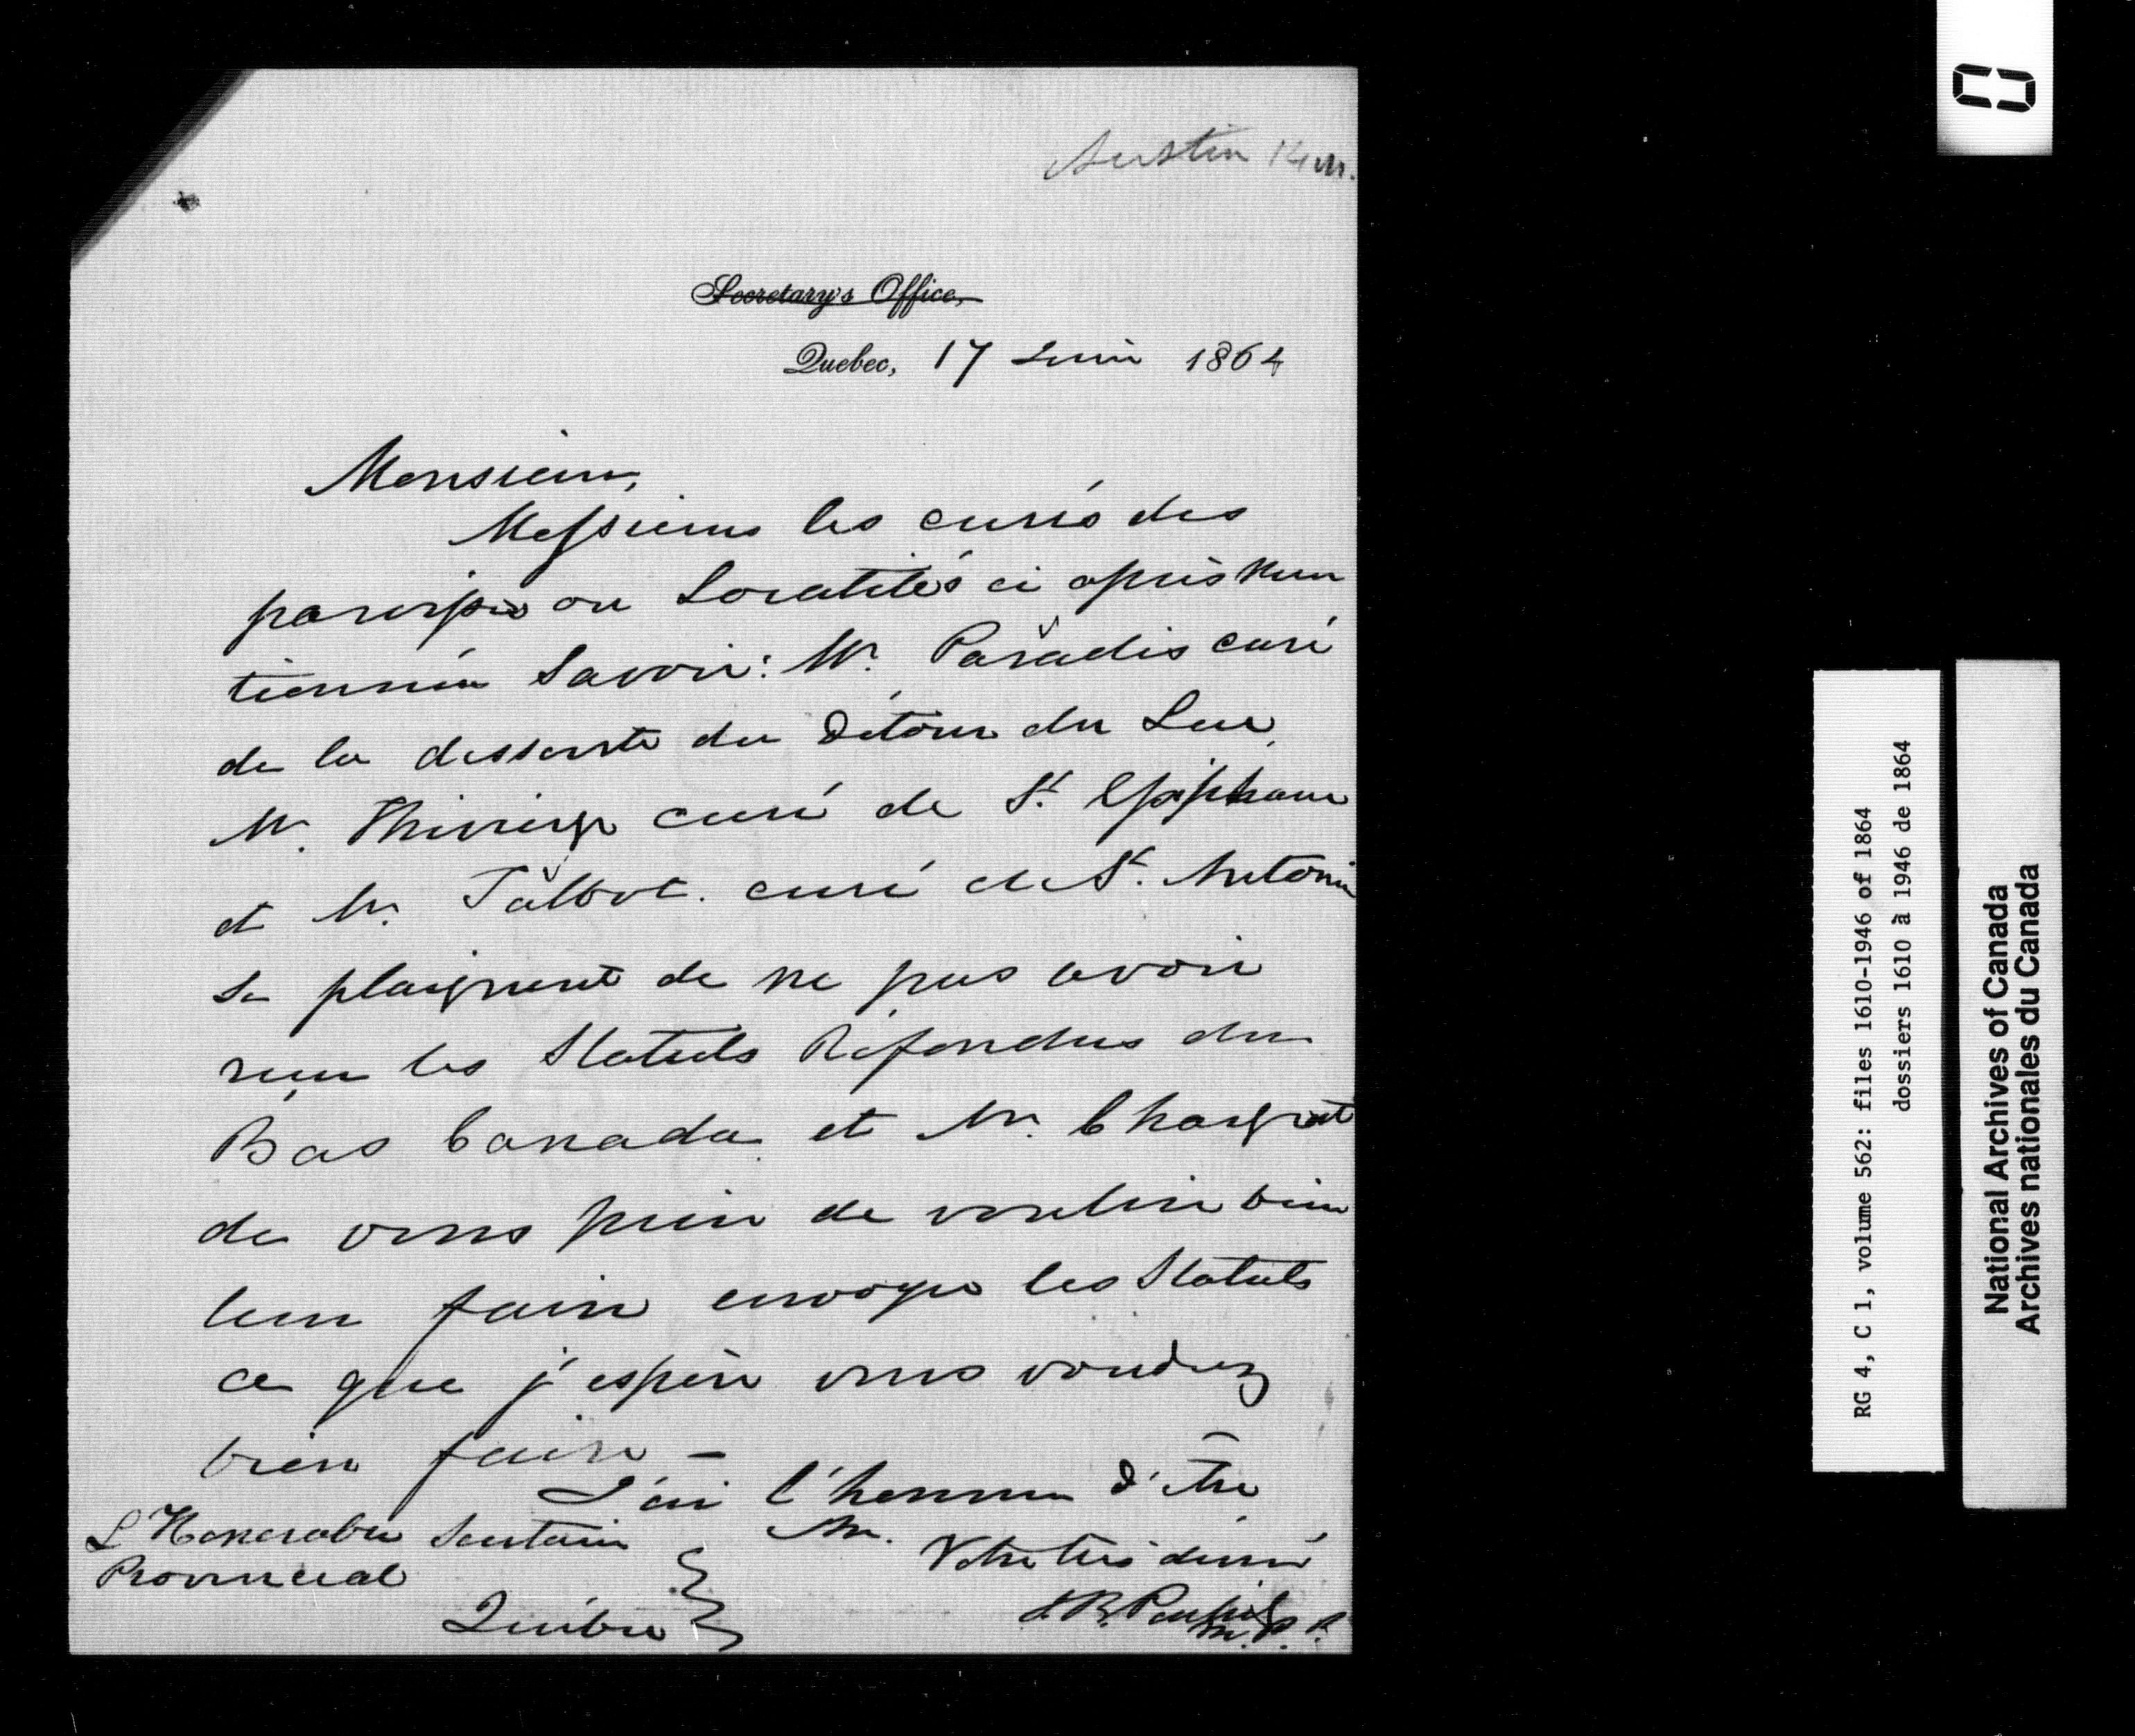 Austin
Secretary's Office,
Quebec, 17 Juin 1864
Monsieur,
Messieurs les curés des
paroisses ou Localités ci après men
tionnées Savoir: Mr. Paradis curé
de la desserte du Détour du Lac,
Mr. Thivierge curé de St. Epiphane
et Mr. Talbot curé de St. Antonin
se plaignent de ne pas avoir
reçu les Statuts Refondus du
Bas Canada et Mr. Chargent
de vous prier de vouloir bien
leur faire envoyer les Statuts
ce que j'espère vous voudrez
bien faire —
J'ai l'honneur d'être
Mr.
Votre très dévoué
J. B. Pouliot
M. P. P.
L'Honorable Secrétaire
Provincial
Québec
RG 4, C 1, volume 562: files 1610-1946 of 1864
dossiers 1610 à 1946 de 1864
National Archives of Canada
Archives nationales du Canada